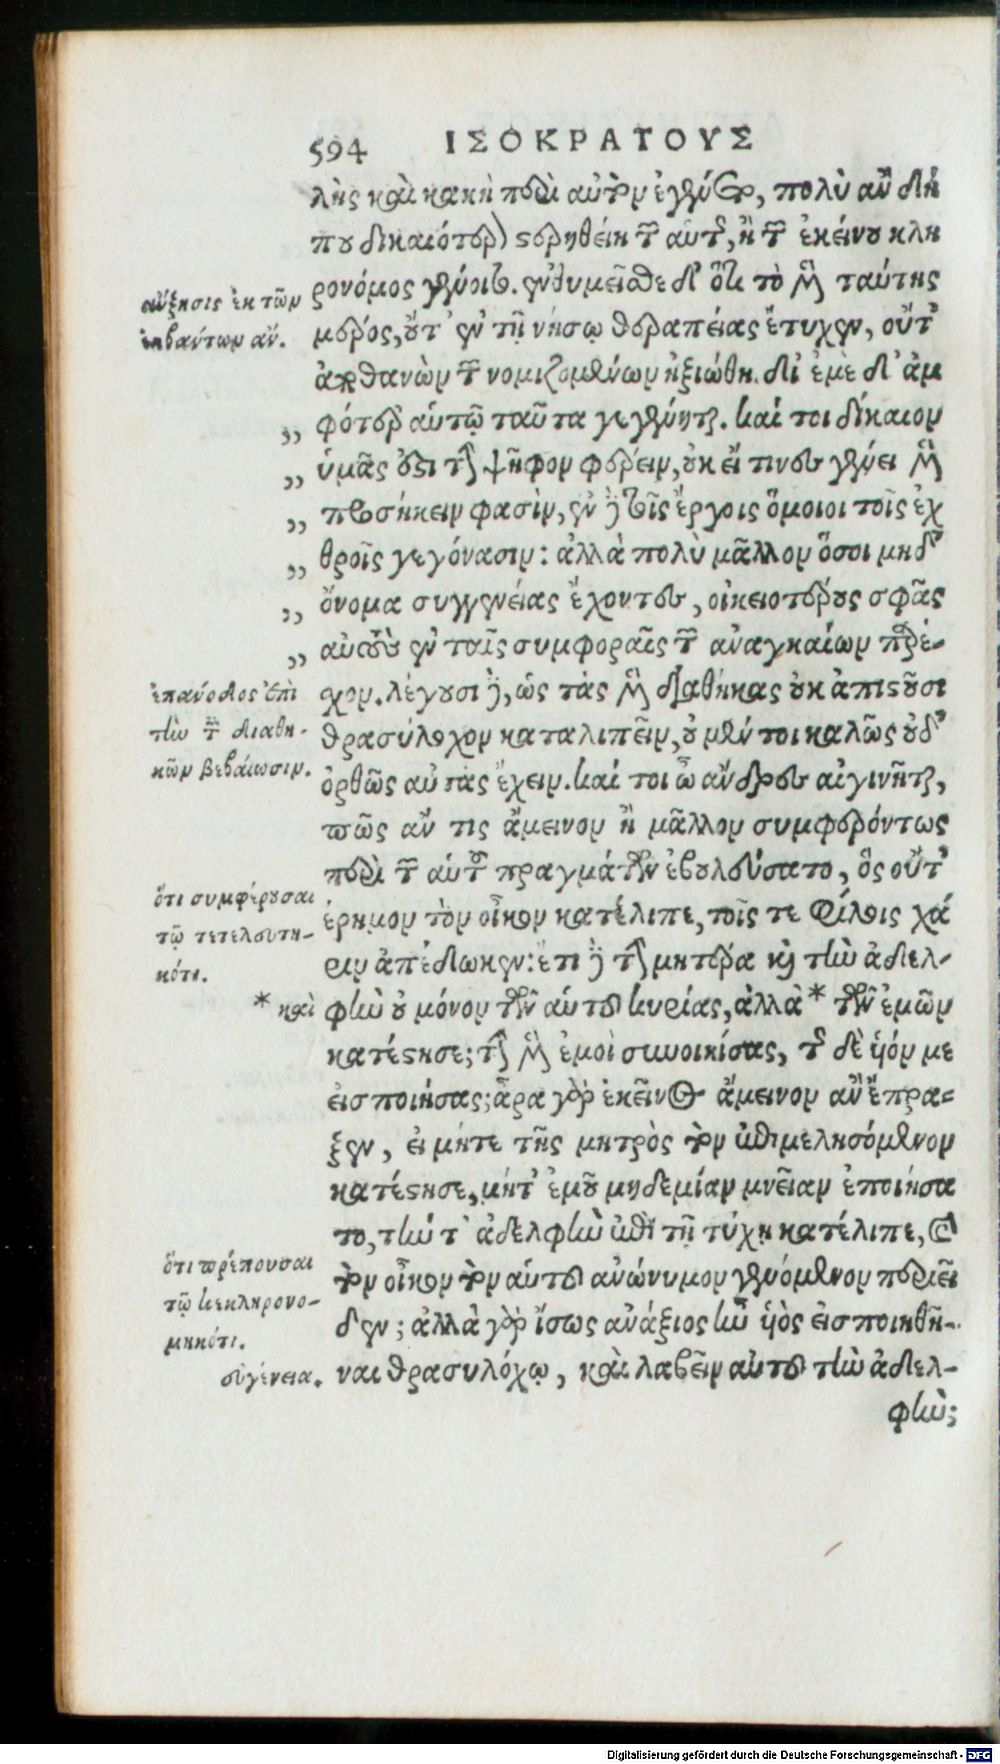 594 ΙΣΟΚΡΑΤΟΥΣ
λὴς καὶ κακὴ περὶ αὐτὸν ἐγένετο, πολὺ ἂν δή
που δικαιότερον στερηθείη τῶν αὑτοῦ, ἢ τῶν ἐκείνου κλη
ρονόμος γένοιτο. ἐνθυμεῖσθε δ' ὅτι τὸ μὲν ταύτης
αὔξησις ἐκ τῶν
ἐκβαντων ἄν.
μέρος, οὔτ' ἐν τῇ νήσῳ θεραπείας ἔτυχεν, οὔτ'
ἀποθανὼν τῶν νομιζομένων ἠξιώθη. δι' ἐμὲ δ' ἀμ
„ φότερα αὐτῷ ταῦτα γεγένηται. καί τοι δίκαιον
„ ὑμᾶς ἐστι τὴν ψῆφον φέρειν, οὐκ εἴ τινες γένει μὲν
„ προσήκειν φασὶν, ἐν δὲ τοῖς ἔργοις ὅμοιοι τοῖς ἐχ
„ θροῖς γεγόνασιν: ἀλλὰ πολὺ μᾶλλον ὅσοι μηδὲν
„ ὄνομα συγγενείας ἔχοντες, οἰκειοτέρους σφᾶς
„ αὐτοὺς ἐν ταῖς συμφοραῖς τῶν ἀναγκαίων παρέ-
ἐπάνοδος ἐπὶ
τὴν τῶν διαθη-
κῶν βεβαίωσιν.
χον. λέγουσι δὲ, ὡς τὰς μὲν διαθήκας οὐκ ἀπιστοῦσι
θρασύλοχον καταλιπεῖν, οὐ μέντοι καλῶς οὐδ'
ὀρθῶς αὐτὰς ἔχειν. καί τοι ὦ ἄνδρες αἰγινῆται,
πῶς ἄν τις ἄμεινον ἢ μᾶλλον συμφερόντως
περὶ τῶν αὑτοῦ πραγμάτων ἐβουλεύσατο, ὃς οὔτ'
ὅτι συμφέρουσαι
τῷ τετελευτη-
κότι.
ἔρημον τὸν οἶκον κατέλιπε, τοῖς τε φίλοις χά
ριν ἀπέδωκεν: ἔτι δὲ τὴν μητέρα καὶ τὴν ἀδελ-
* καὶ φὴν οὐ μόνον τῶν αὑτοῦ κυρίας, ἀλλὰ * τῶν ἐμῶν
κατέστησε; τὴν μὲν ἐμοὶ συνοικίσας, τῆς δὲ υἱόν με
εἰσποιήσας; ἆρα γὰρ ἐκεῖνος ἄμεινον ἂν ἔπρα-
ξεν, εἰ μήτε τῆς μητρὸς τὸν ἐπιμελησόμενον
κατέστησε, μήτ' ἐμοῦ μηδεμίαν μνείαν ἐποιήσα
το, τήν τ' ἀδελφὴν ἐπὶ τῇ τύχῃ κατέλιπε, καὶ
ὅτι πρέπουσαι
τῷ κεκληρονο-
μηκότι.
τὸν οἶκον τὸν αὑτοῦ ἀνώνυμον γενόμενον περιεῖ
δεν; ἀλλὰ γὰρ ἴσως ἀνάξιος ἦν υἱὸς εἰσποιηθῆ-
συγένεια.
ναι θρασυλόχῳ, καὶ λαβεῖν αὐτοῦ τὴν ἀδελ-
φήν;
Digitalisierung gefördert durch die Deutsche Forschungsgemeinschaft - DFG